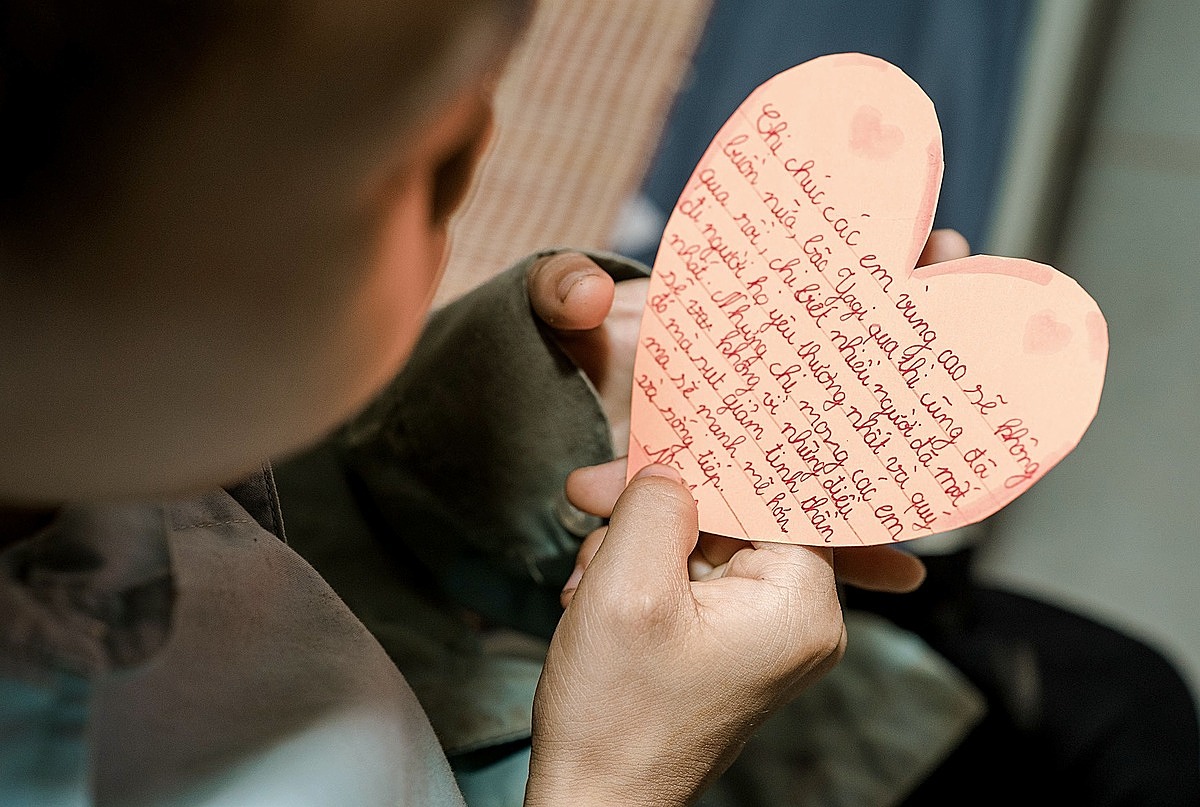 Chị chúc các em vùng cao sẽ không
buồn nữa, bão Yagi qua thì cũng đã
qua rồi, chị biết nhiều người đã mất
đi người họ yêu thương nhất và quý
nhất. Nhưng chị mong các em
sẽ không vì những điều
đó mà sụt giảm tinh thần
mà sẽ mạnh mẽ hơn
và sống tiếp.